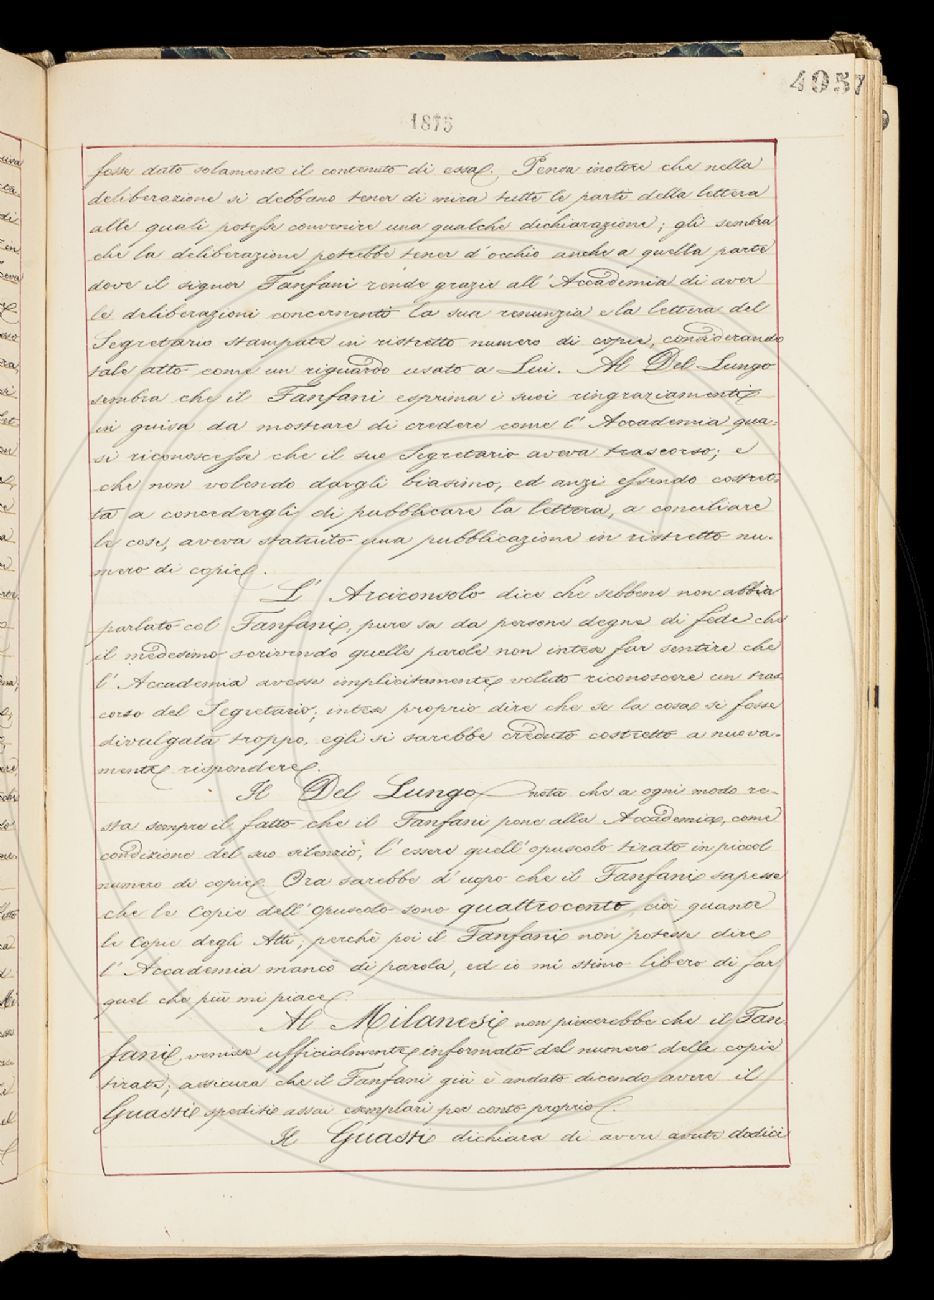 4957
1875
fosse dato solamente il contenuto di essa. Pensa inoltre che nella
deliberazione si debbano tener di mira tutte le parti della lettera
alle quali potesse convenire una qualche dichiarazione; gli sembra
che la deliberazione potrebbe tener d'occhio anche a quella parte
dove il signor Fanfani rende grazie all'Accademia di aver
le deliberazioni concernenti la sua renunzia e la lettera del
Segretario stampate in ristretto numero di copie, considerando
tale atto come un riguardo usato a Lui. Al Del Lungo
sembra che il Fanfani esprima i suoi ringraziamenti
in guisa da mostrare di credere come l'Accademia qua-
si riconoscesse che il suo Segretario aveva trascorso; e
che non volendo dargli biasimo, ed anzi essendo costret-
ta a concedergli di pubblicare la lettera, a conciliare
le cose, aveva statuito una pubblicazione in ristretto nu-
mero di copie.
L'Arciconsolo dice che sebbene non abbia
parlato col Fanfani, pure sa da persone degne di fede che
il medesimo scrivendo quelle parole non intese far sentire che
l'Accademia avesse implicitamente voluto riconoscere un tras-
corso del Segretario; intese proprio dire che se la cosa si fosse
divulgata troppo, egli si sarebbe creduto costretto a nuova-
mente rispondere.
Il Del Lungo nota che a ogni modo re-
sta sempre il fatto che il Fanfani pone alla Accademia, come
condizione del suo silenzio, l'essere quell'opuscolo tirato in piccol
numero di copie. Ora sarebbe d'uopo che il Fanfani sapesse
che le Copie dell'opuscolo sono quattrocento, cioè quante
le Copie degli Atti; perchè poi il Fanfani non potesse dire
l'Accademia mancò di parola, ed io mi stimo libero di far
quel che più mi piace.
Al Milanesi non piacerebbe che il Fan-
fani, venisse ufficialmente informato del numero delle copie
tirate; assicura che il Fanfani già è andato dicendo avere il
Guasti spediti assai esemplari per conto proprio.
Il Guasti dichiara di avere avute dodici